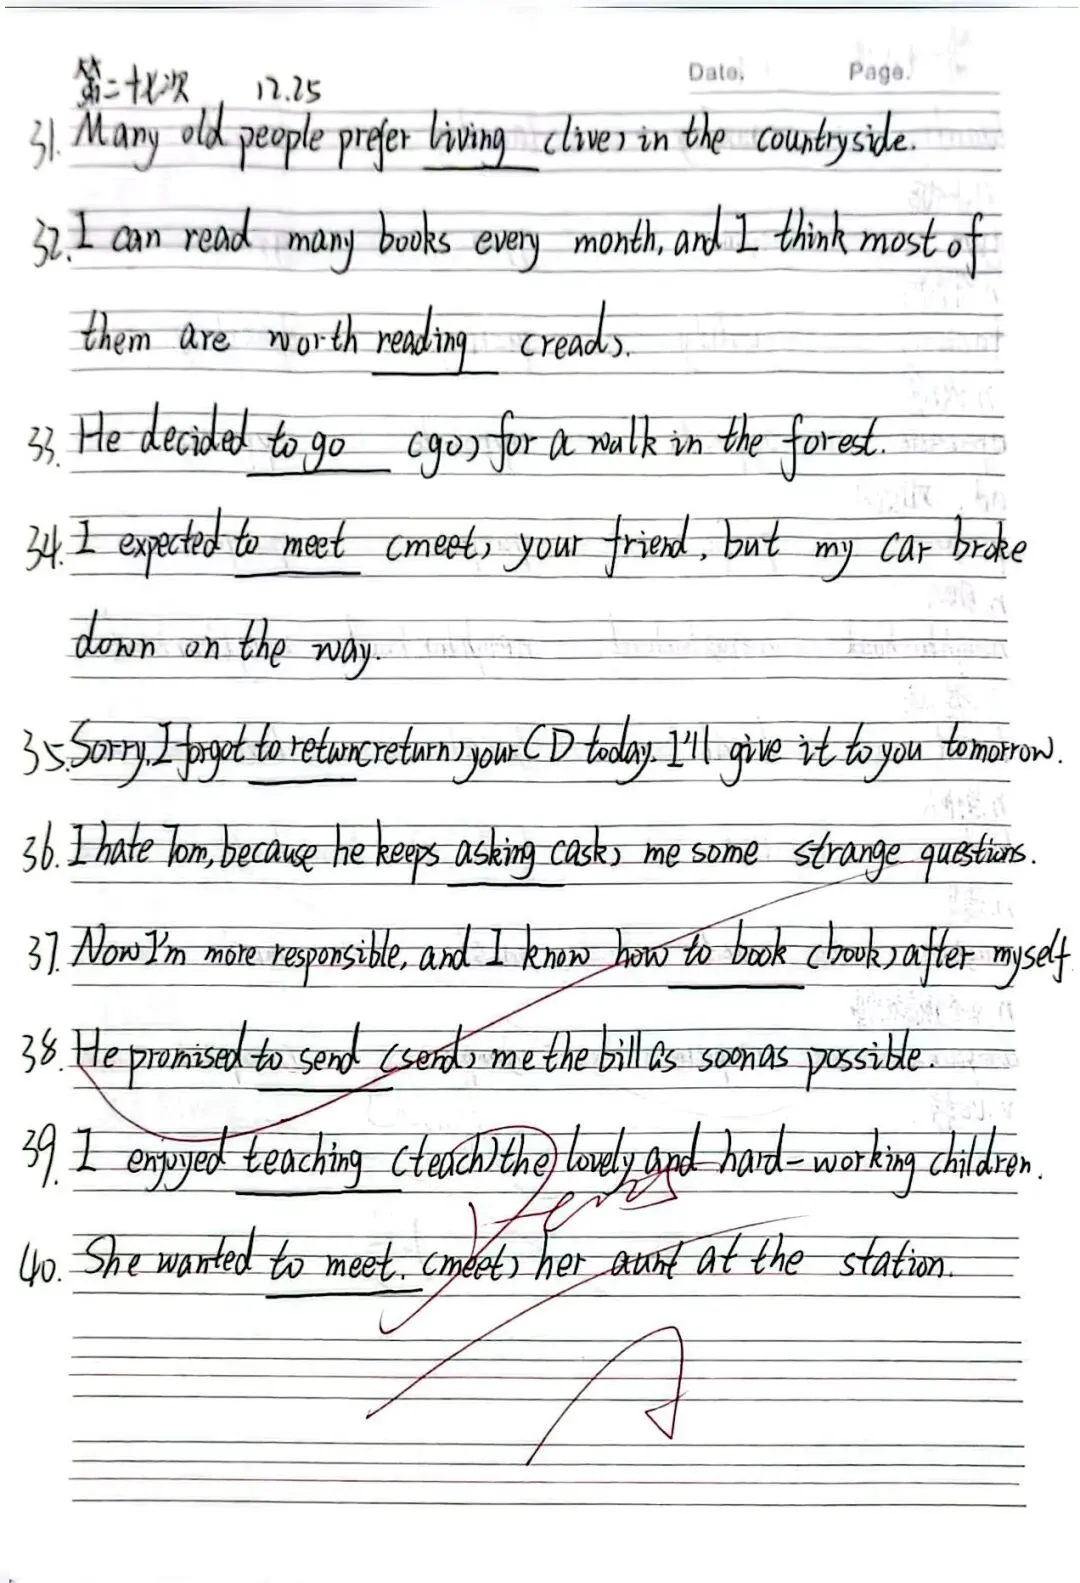 第二十七次 12.25
Date. Page.
31. Many old people prefer living (live) in the countryside.
32. I can read many books every month, and I think most of
them are worth reading (read).
33. He decided to go (go) for a walk in the forest.
34. I expected to meet (meet) your friend, but my car broke
down on the way.
35. Sorry, I forgot to return (return) your CD today. I'll give it to you tomorrow.
36. I hate Tom, because he keeps asking (ask) me some strange questions.
37. Now I'm more responsible, and I know how to book (book) after myself
38. He promised to send (send) me the bill as soon as possible.
39. I enjoyed teaching (teach) the lovely and hard-working children.
40. She wanted to meet. (meet) her aunt at the station.